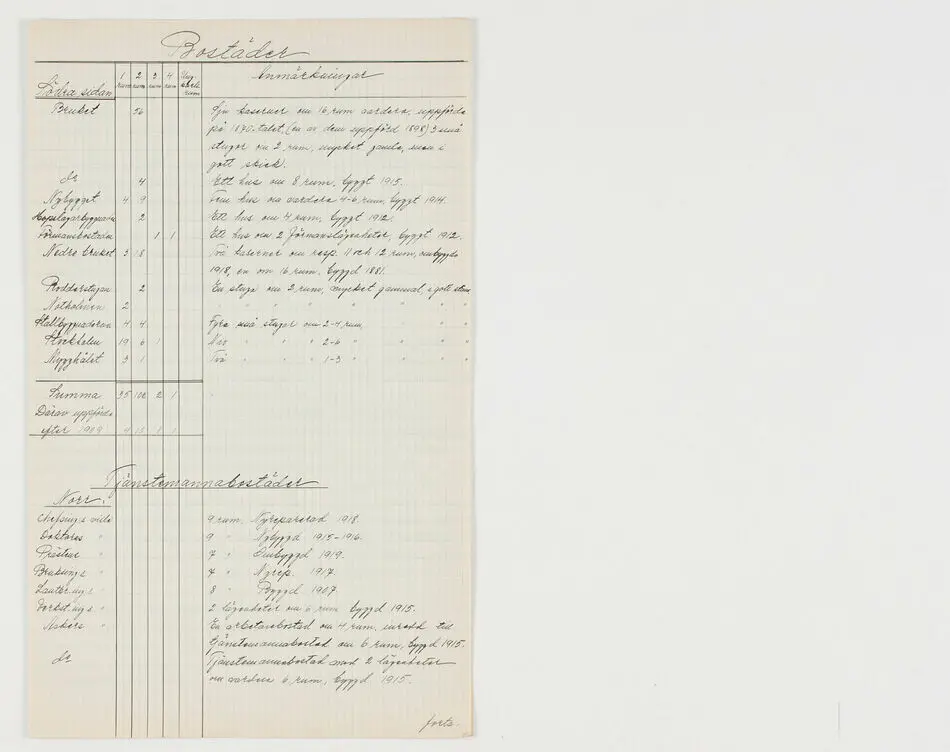 Bostäder
Södra sidan 1 rum 2 rum 3 rum 4 rum Ung- karls- rum Anmärkningar
Bruket 56 Sju kaserner om 16 rum vardera, uppförda
på 1870-talet, (en av dem uppförd 1898) 3 små
stugor om 2 rum, mycket gamla, men i
gott skick.
do 4 Ett hus om 8 rum, byggt 1915.
Nybygget 4 9 Fem hus om vardera 4-6 rum, byggt 1914.
2 Ett hus om 4 rum, byggt 1912.
Förmansbostaden 1 1 Ett hus om 2 förmanslägenheter, byggt 1912.
Nedre bruket 3 18 Två kaserner om resp. 11 och 12 rum, ombyggda
1918, en om 16 rum, byggd 1881.
2 En stuga om 2 rum, mycket gammal, i gott
Notholmen 2 " " " " " " " "
Stallbyggnaderna 4 4 Fyra små stugor om 2-4 rum
Stockholm 19 6 1 Nio " " " 2-6 " " " "
Mygghålet 3 1 Två " " " 1-3 " " " "
Summa 35 102 2 1
Därav uppförda
efter 1909 4 15 1 1
Tjänstemannabostäder
Norr:
9 rum, Nyreparerad 1918.
Doktorns " 9 " Nybyggd 1915-1916.
Prästens " 7 " Ombyggd 1919.
Bruksing:s " 7 " Nyrep. 1917.
" 8 " Byggd 1907.
" 2 lägenheter om 6 rum byggd 1915.
" En arbetarebostad om 4 rum, inredd till
tjänstemannabostad om 6 rum, byggd 1915.
do Tjänstemannabostad med 2 lägenheter
om vardera 6 rum, byggd 1915.
forts.